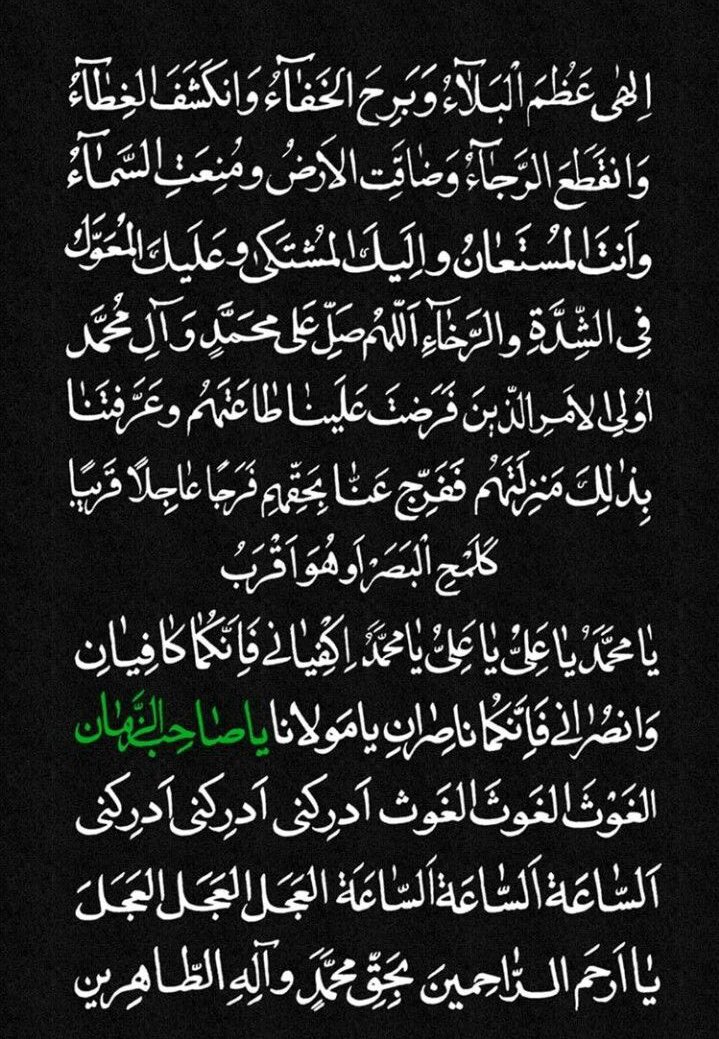 اِلٰهى عَظُمَ الْبَلآءُ وَبَرِحَ الخَفآءُ وَانكَشَفَ الغِطآءُ
وَانقَطَعَ الرَّجآءُ وَضاقَتِ الاَرضُ ومُنِعَتِ السَّمآءُ
واَنتَ المُستَعانُ واِلَيكَ المُشتَكى وعَلَيكَ المُعَوَّلُ
فِى الشِّدَّةِ والرَّخآءِ اَللّهُم صَلِّ عَلى محَمَّدٍ وَآلِ مُحَمَّد
اوُلِى الاَمرِ الَّذينَ فَرَضتَ عَلَينا طاعَتَهُم وعَرَّفتَنا
بِذٰلِكَ مَنزِلَتَهُم فَفَرِّج عَنّا بِحَقِّهِم فَرَجًا عاجِلاً قَريبًا
كَلَمْحِ الْبَصَرْ اَو هُوَ اَقْرَبُ
يا محَمَّدُ يا عَلِىُّ يا عَلِىُّ يا محَمَّدُ اِكْفِيانے فَاِنَّكُما كافِيانِ
وَانصُرانے فَاِنَّكُما ناصِرانِ يا مَولانا يا صاحِبَ الزَّمان
الغَوْثَ الغَوثَ الغَوث اَدرِكنى اَدرِكنى اَدرِكنى
اَلسّاعَة اَلسّاعَة اَلسّاعَة العَجَل العَجَل العَجَلَ
يا اَرحَم الرّاحِمينَ بِحَقِّ محَمَّدٍ وآلِهِ الطّاهِرينِ